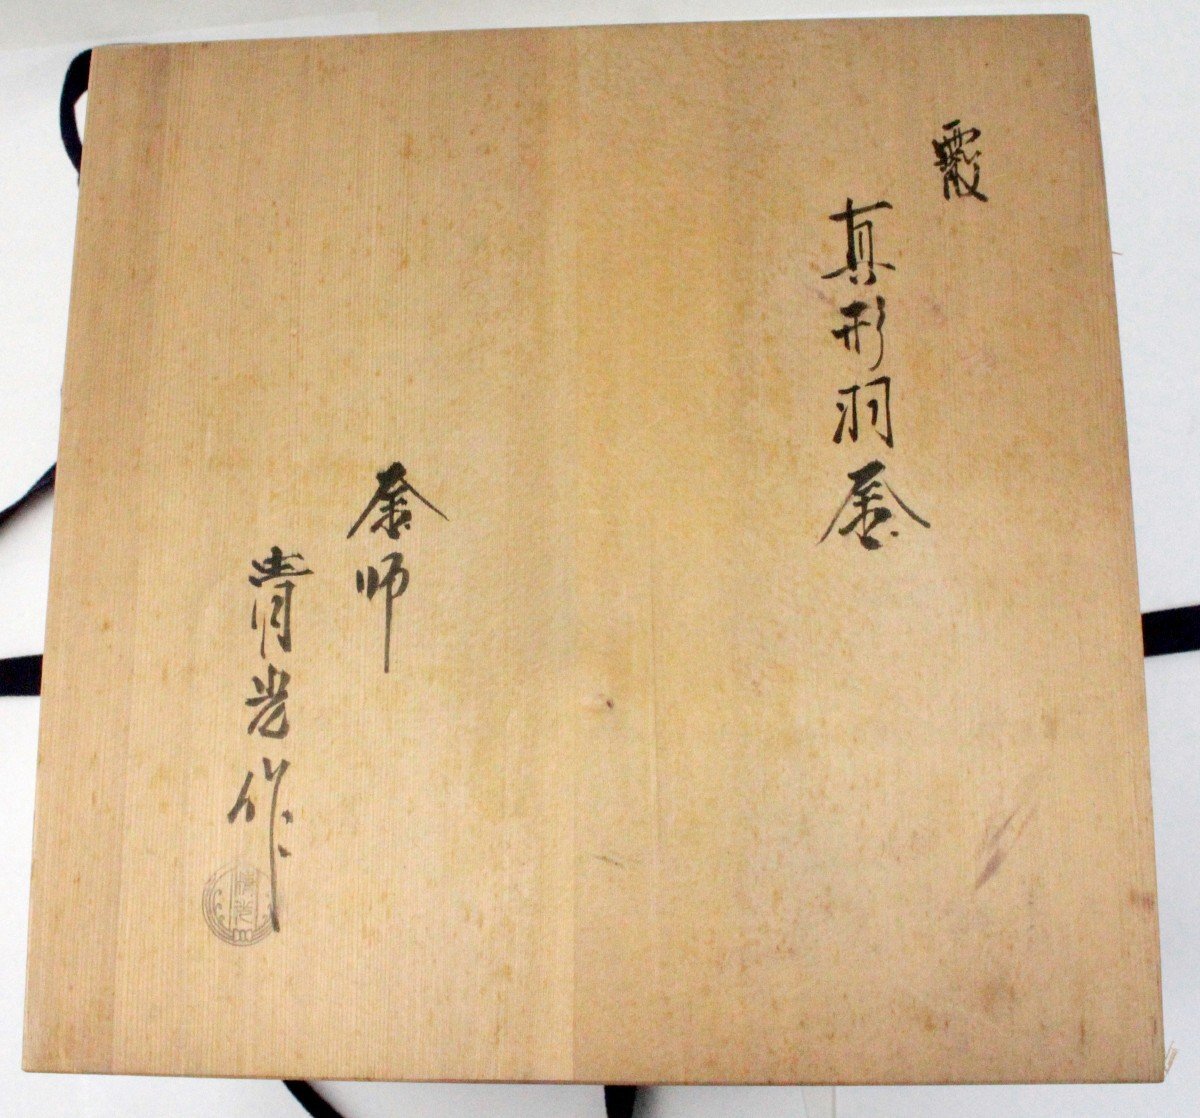 霰
真形羽釜
釜師
青光作